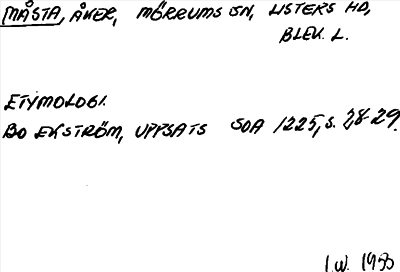 MÅSTA, ÅKER, MÖRRUMS SN, LISTERS HD,
BLEK. L.
ETYMOLOGI.
BO EKSTRÖM, UPPSATS SOA 1225, S. 28-29.
I.W. 1993